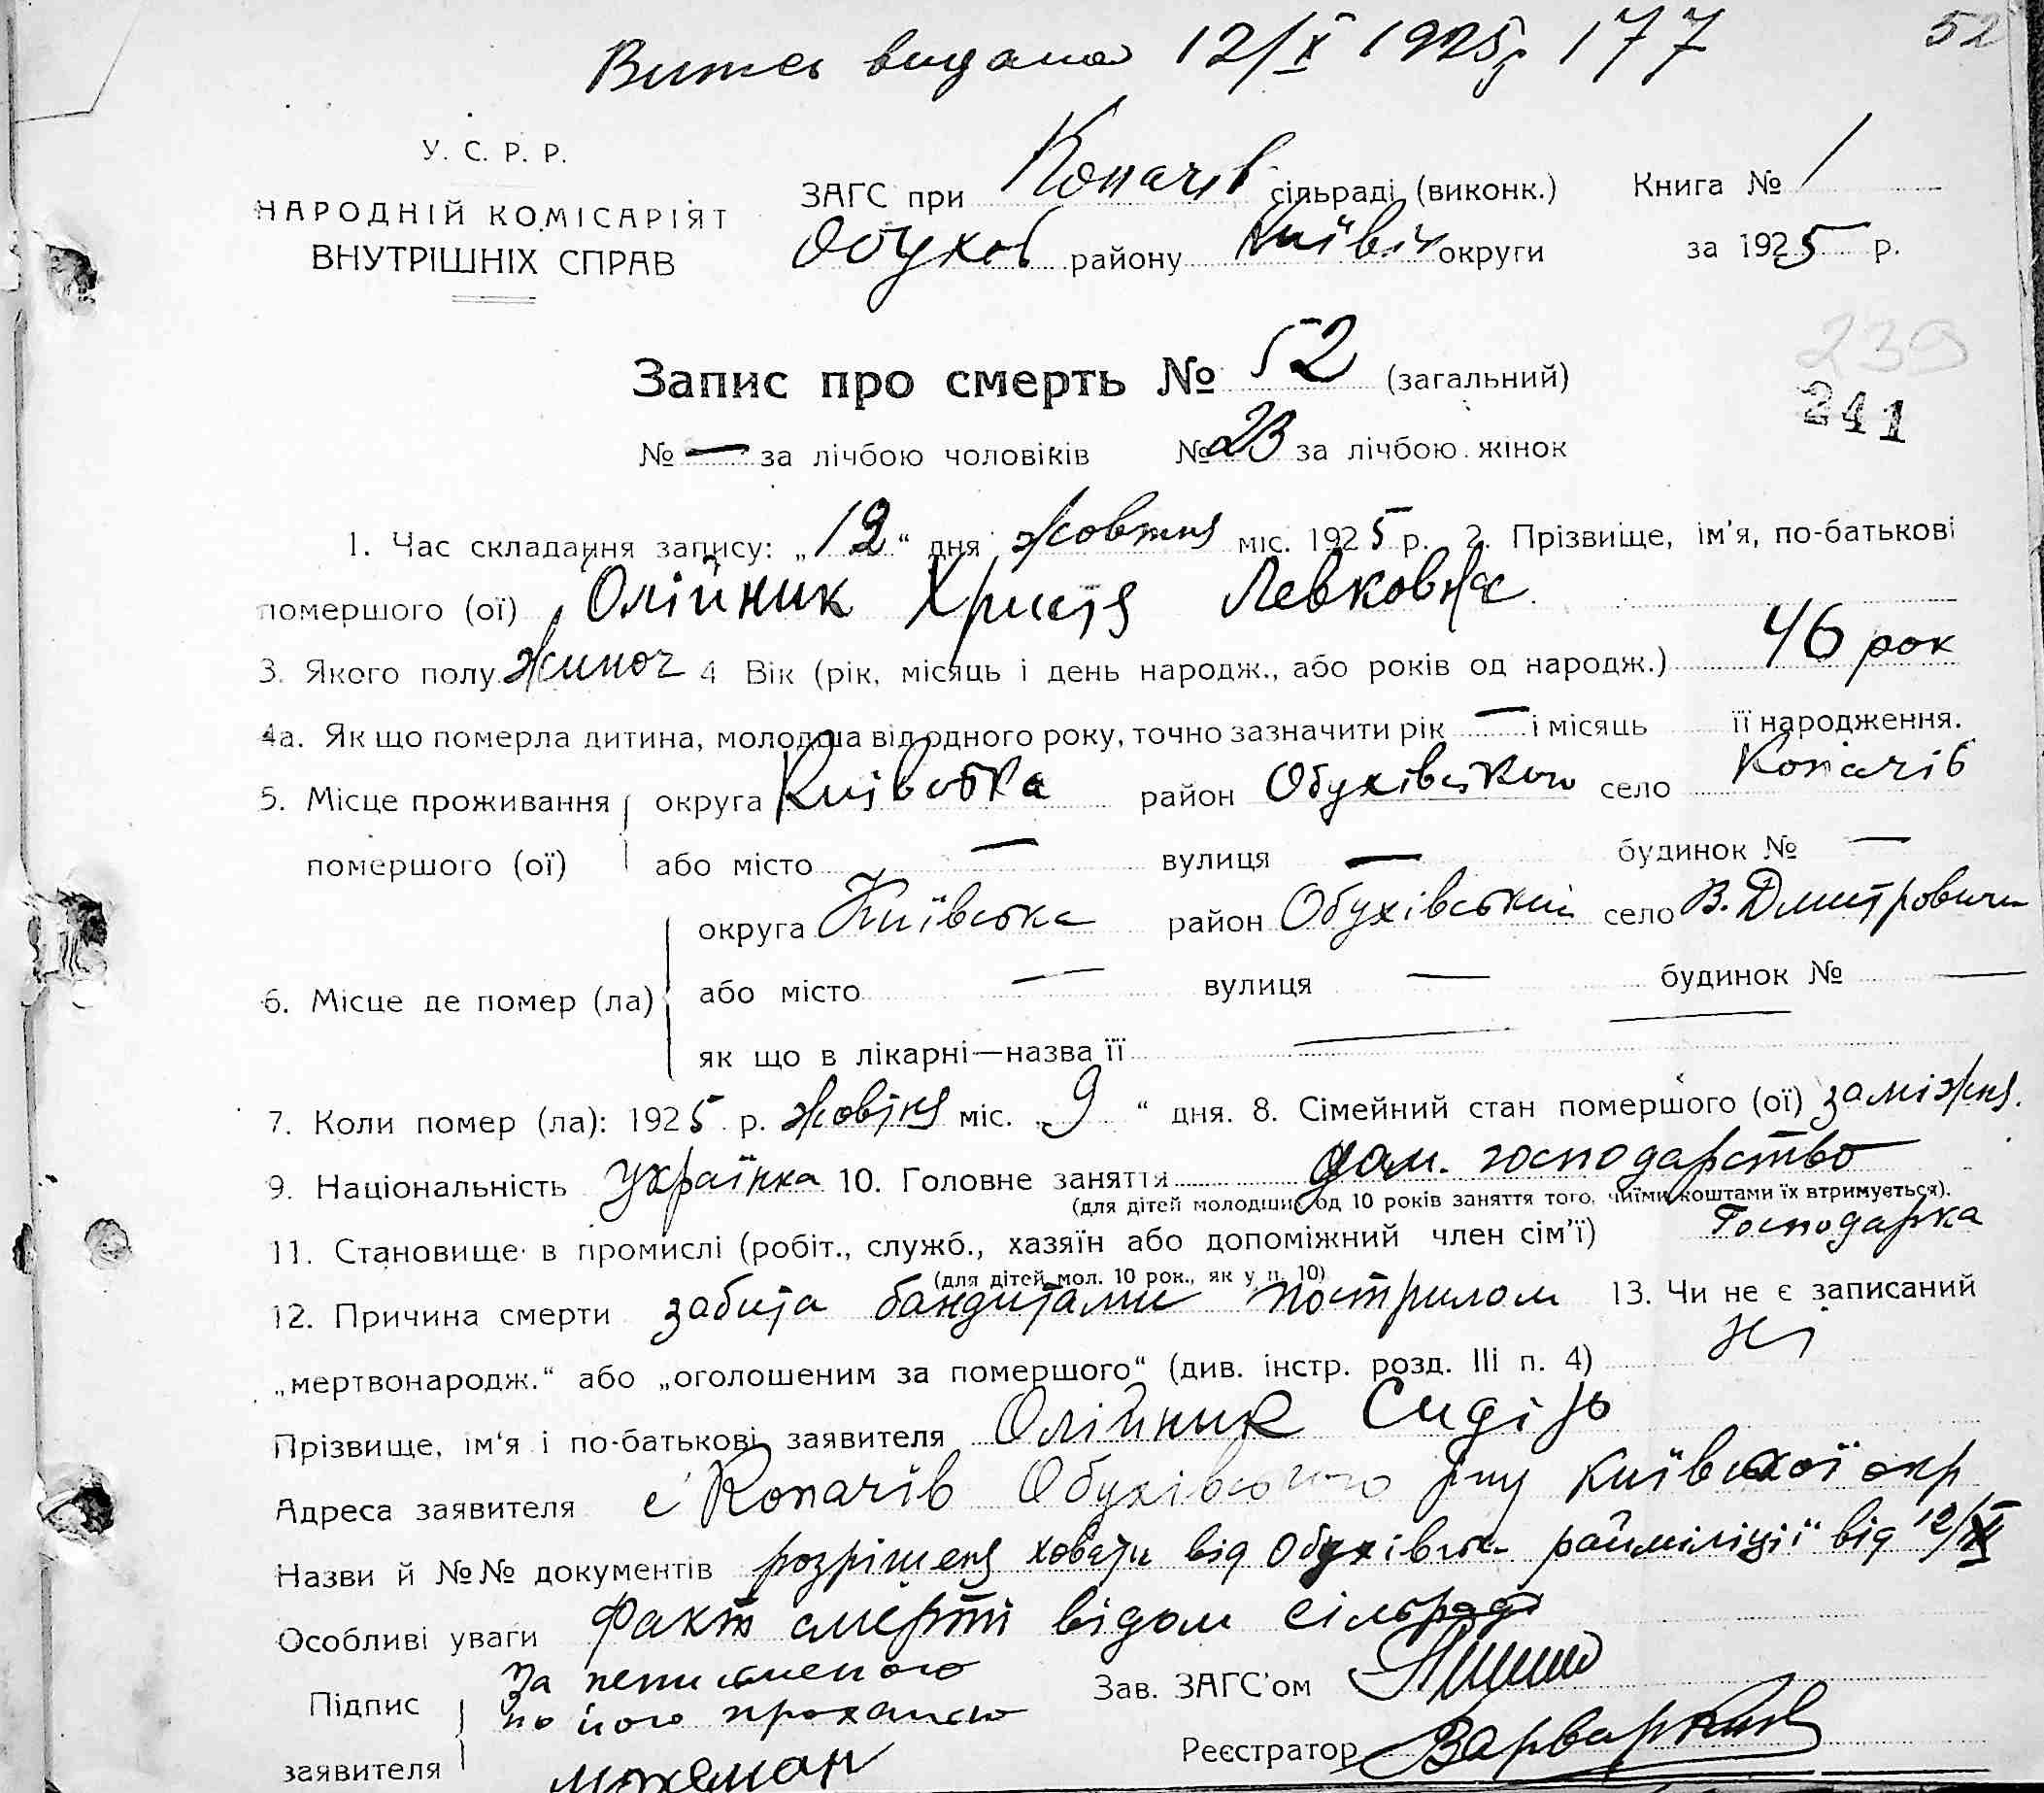 Витяг видана 12/X 1925 р 177 52
У. С. Р. Р.
НАРОДНІЙ КОМІСАРІЯТ
ВНУТРІШНІХ СПРАВ
ЗАГС при Копачів сільраді (виконк.) Книга № 1
Обухов району Київськ округи за 1925 р.
239
Запис про смерть № 52 (загальний)
241
№ — за лічбою чоловіків № 23 за лічбою жінок
1. Час складання запису: „12“ дня жовтня міс. 1925 р. 2. Прізвище, ім'я, по-батькові
помершого (ої) Олійник Христя Левковна
3. Якого полу жиноч 4 Вік (рік, місяць і день народж., або років од народж.) 46 рок
4а. Як що померла дитина, молодша від одного року, точно зазначити рік — і місяць її народження.
5. Місце проживання округа Київська район Обухівського село Копачів
помершого (ої) або місто — вулиця — будинок № —
округа Київська район Обухівський село В. Дмитровичи
6. Місце де помер (ла) або місто — вулиця — будинок № —
як що в лікарні—назва її —
7. Коли помер (ла): 1925 р. жовтня міс. „9“ дня. 8. Сімейний стан помершого (ої) заміжня.
9. Національність Українка 10. Головне заняття дом. господарство
(для дітей молодших од 10 років заняття того, чиїми коштами їх втримується).
11. Становище в промислі (робіт., служб., хазяїн або допоміжний член сім'ї) Господарка
(для дітей мол. 10 рок., як у п. 10)
12. Причина смерти забита бандитами пострилом 13. Чи не є записаний
„мертвонародж.“ або „оголошеним за помершого“ (див. інстр. розд. III п. 4) Ні
Прізвище, ім'я і по-батькові заявителя Олійник Сидір
Адреса заявителя с Копачів Обухівського р-ну Київської окр
Назви й №№ документів розрішеня ховати від Обухівськ райміліції від 12/X
Особливі уваги Факт смерти відом сільраді
Підпис За неписьменого Зав. ЗАГС'ом
по його проханню
заявителя Реєстратор